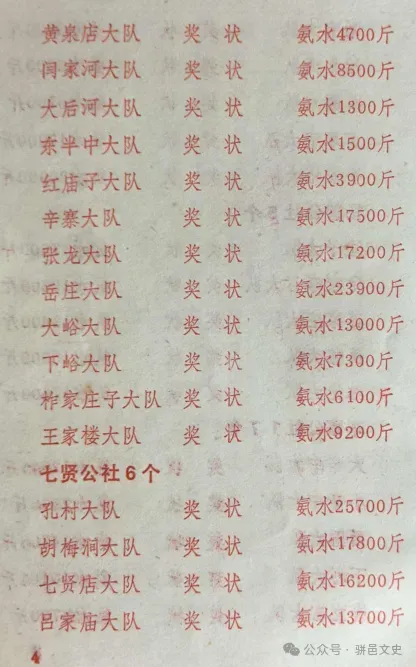 黄泉店大队 奖 状 氨水4700斤
闫家河大队 奖 状 氨水8500斤
大后河大队 奖 状 氨水1300斤
东半中大队 奖 状 氨水1500斤
红庙子大队 奖 状 氨水3900斤
辛寨大队 奖 状 氨水17500斤
张龙大队 奖 状 氨水17200斤
岳庄大队 奖 状 氨水23900斤
大峪大队 奖 状 氨水13000斤
下峪大队 奖 状 氨水7300斤
柞家庄子大队 奖 状 氨水6100斤
王家楼大队 奖 状 氨水9200斤
七贤公社6个
孔村大队 奖 状 氨水25700斤
胡梅涧大队 奖 状 氨水17800斤
七贤店大队 奖 状 氨水16200斤
吕家庙大队 奖 状 氨水13700斤
4
公众号·骈邑文史